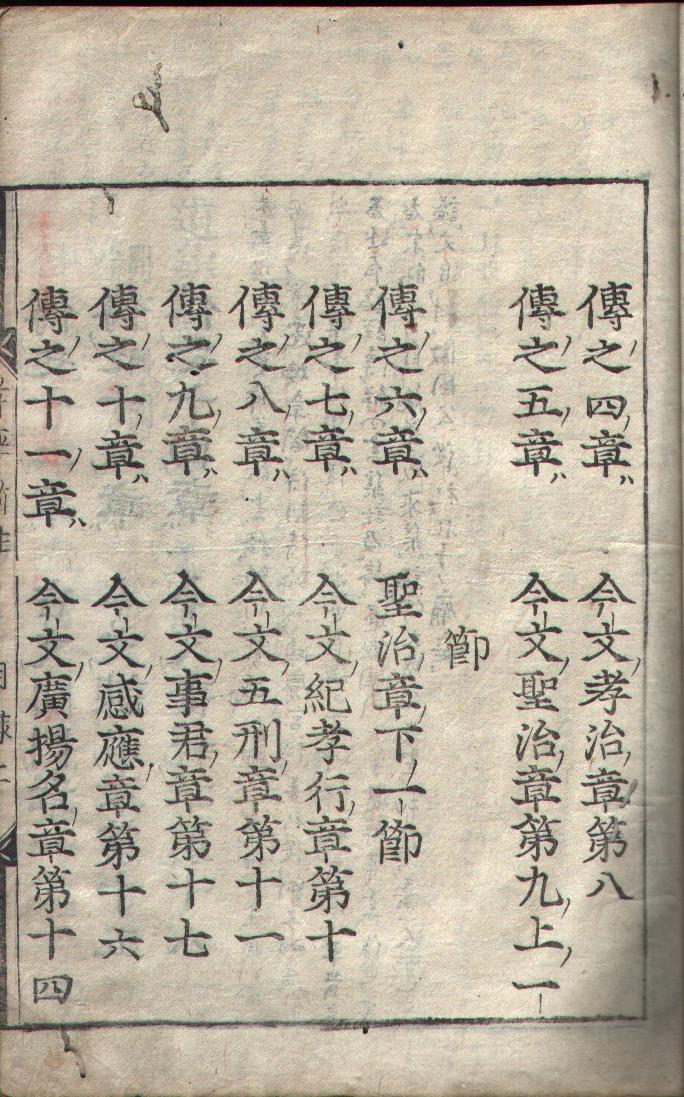 傳之四章 今文孝治章第八
傳之五章 今文聖治章第九上一
節
傳之六章 聖治章下一節
傳之七章 今文紀孝行章第十
傳之八章 今文五刑章第十一
傳之九章 今文事君章第十七
傳之十章 今文感應章第十六
傳之十一章 今文廣揚名章第十四